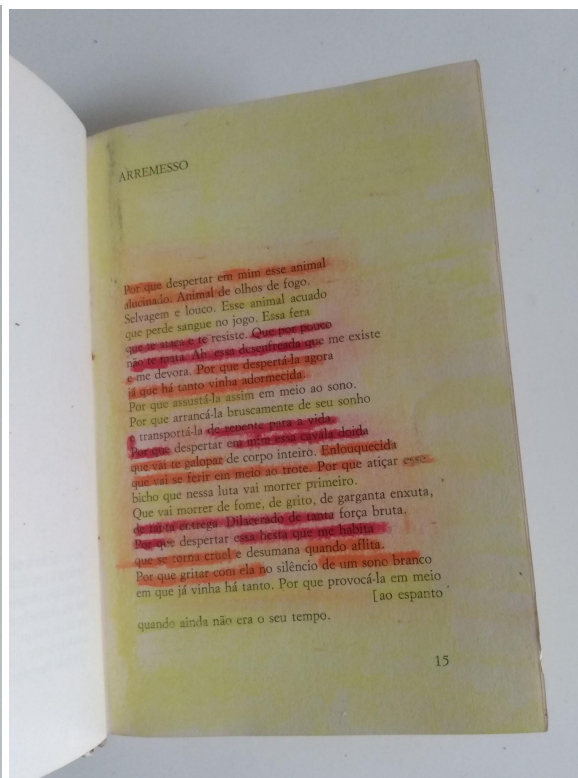 ARREMESSO
Por que despertar em mim esse animal
alucinado. Animal de olhos de fogo.
Selvagem e louco. Esse animal acuado
que perde sangue no jogo. Essa fera
que te ataca e te resiste. Que por pouco
não te mata. Ah! essa desenfreada que me existe
e me devora. Por que despertá-la agora
já que há tanto vinha adormecida.
Por que assustá-la assim em meio ao sono.
Por que arrancá-la bruscamente de seu sonho
e transportá-la de repente para a vida.
Por que despertar em mim essa cavala doida
que vai te galopar de corpo inteiro. Enlouquecida
que vai se ferir em meio ao trote. Por que atiçar esse
bicho que nessa luta vai morrer primeiro.
Que vai morrer de fome, de grito, de garganta enxuta,
de tanta entrega. Dilacerado de tanta força bruta.
Por que despertar essa besta que me habita
que se torna cruel e desumana quando aflita.
Por que gritar com ela no silêncio de um sono branco
em que já vinha há tanto. Por que provocá-la em meio
[ao espanto
quando ainda não era o seu tempo.
15